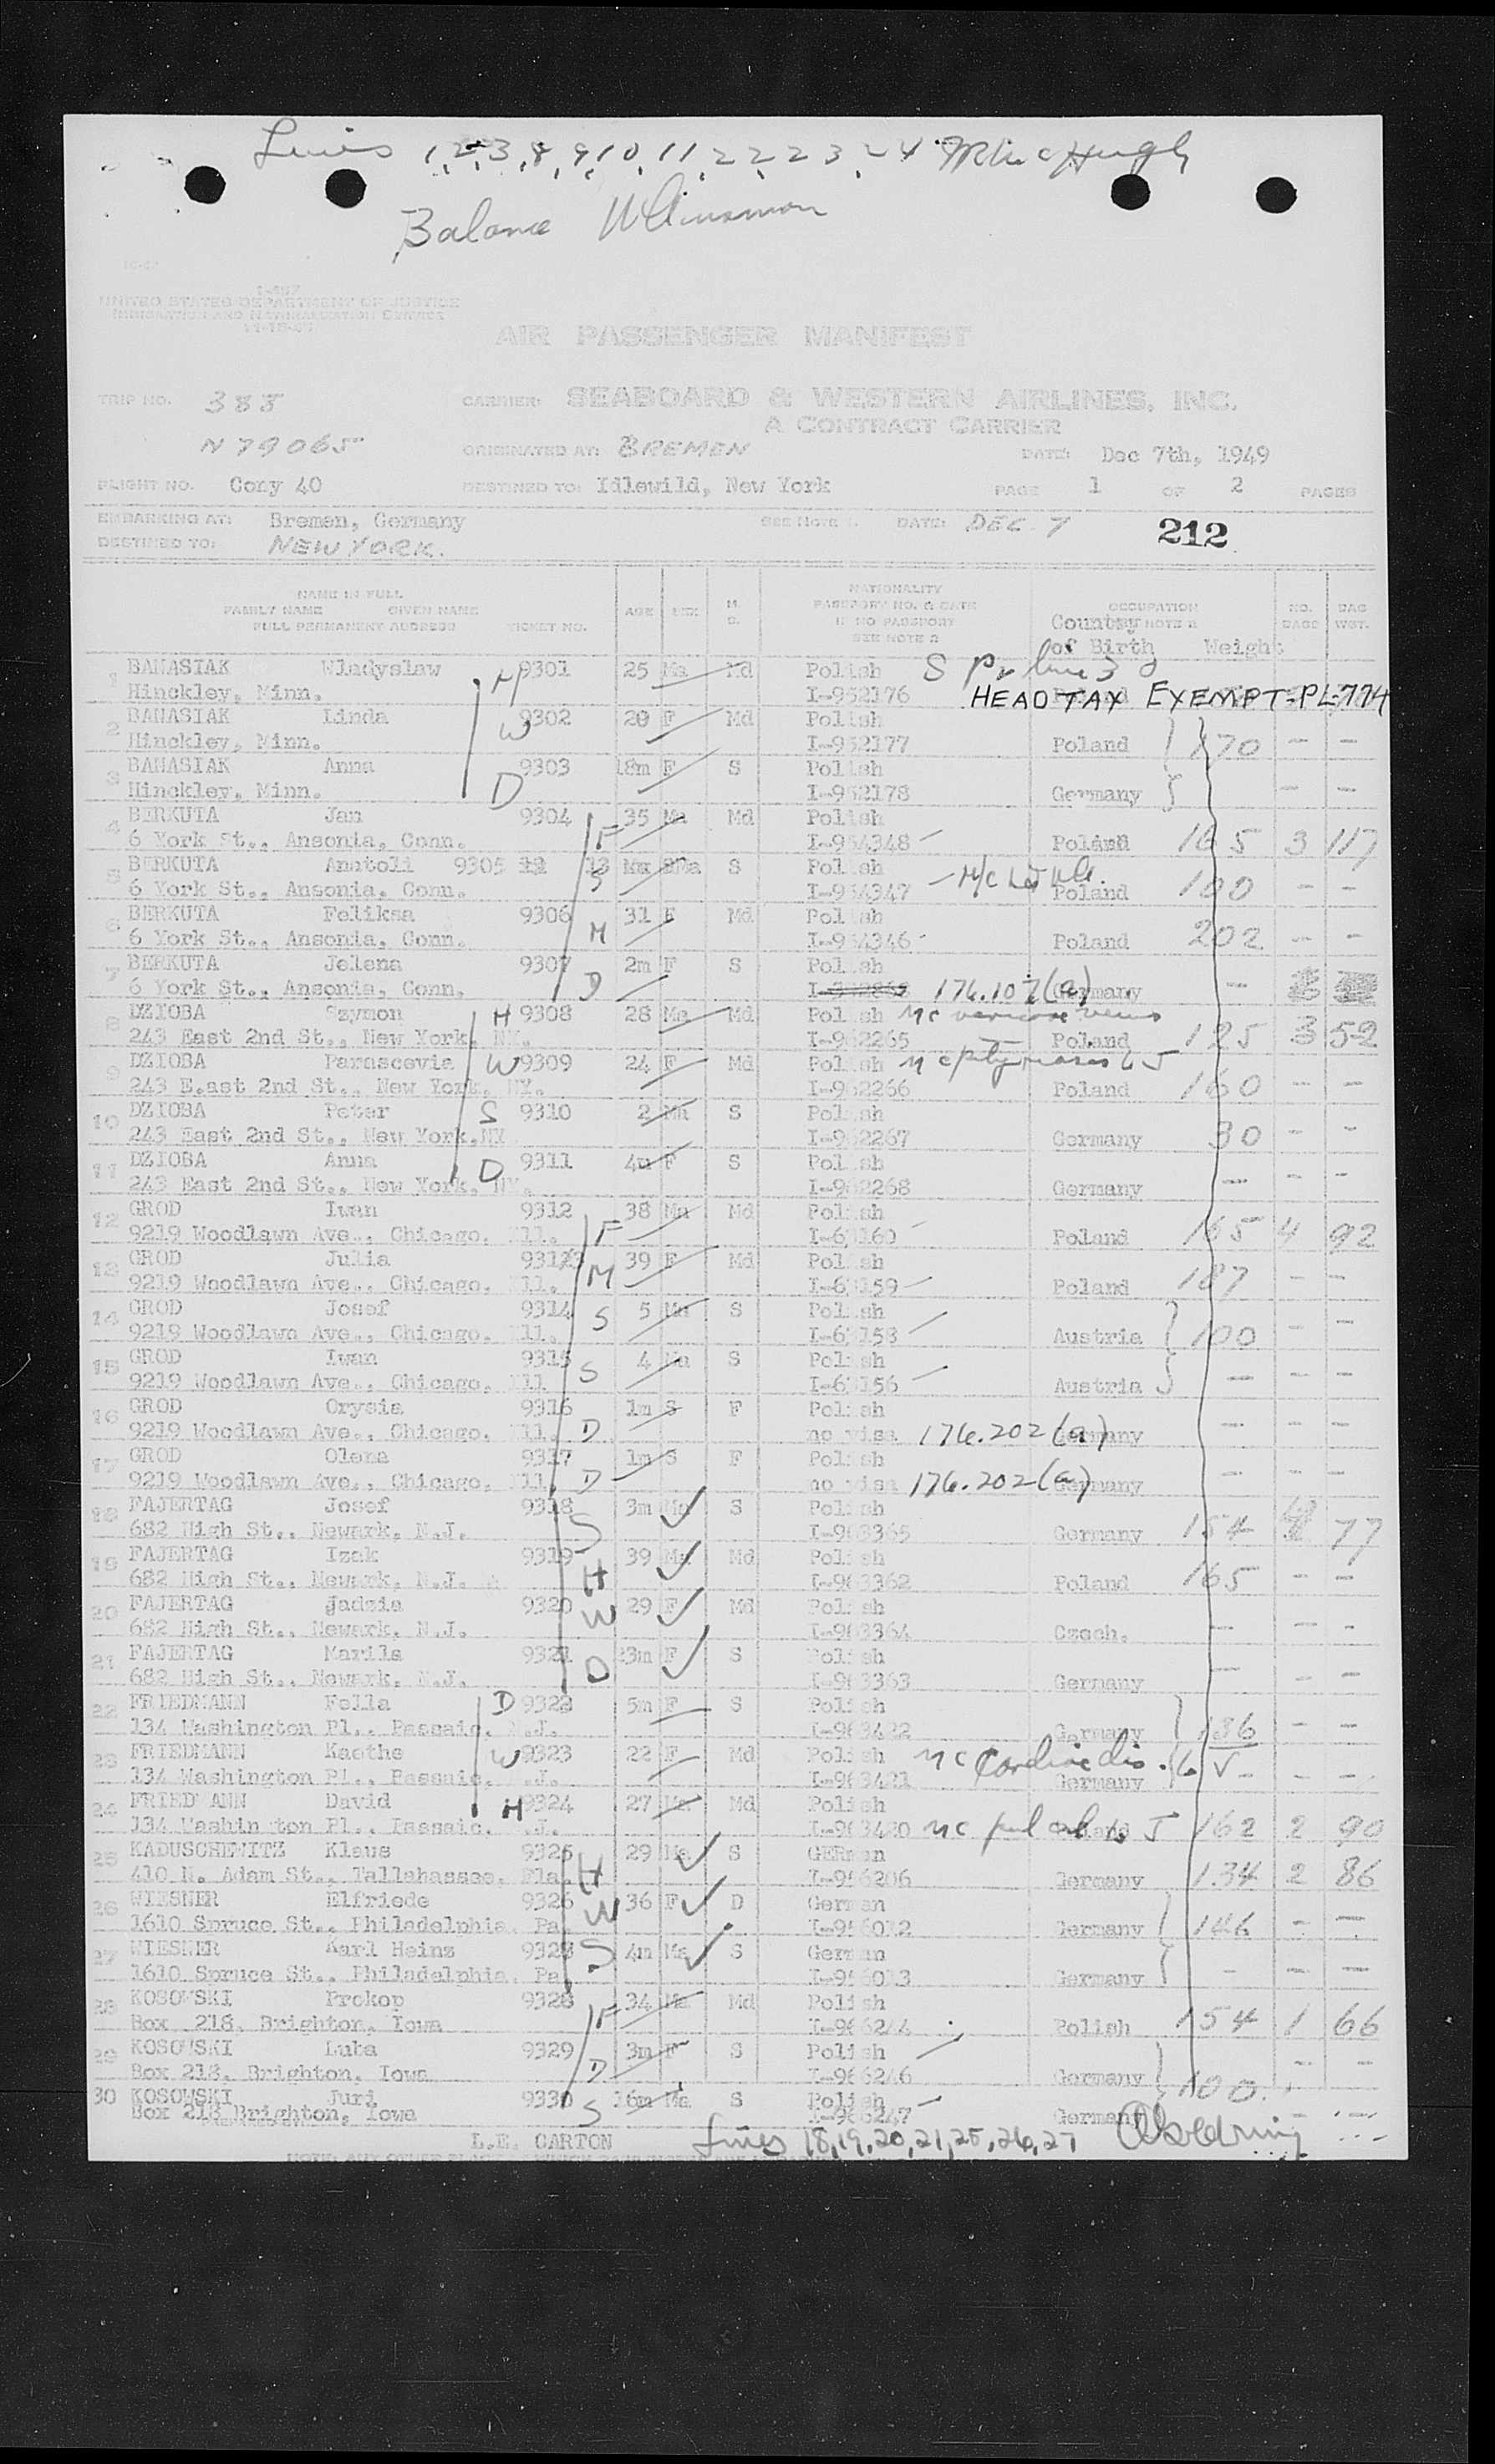 Lines 1, 2, 3, 8, 9, 10, 11, 22, 23, 24
Balance
I-487
UNITED STATES DEPARTMENT OF JUSTICE
IMMIGRATION AND NATURALIZATION SERVICE
AIR PASSENGER MANIFEST
TRIP NO. 388 CARRIER: SEABOARD & WESTERN AIRLINES, INC.
A CONTRACT CARRIER
N79065 ORIGINATED AT: BREMEN DATE: Dec 7th, 1949
FLIGHT NO. Cony 40 DESTINED TO: Idlewild, New York PAGE 1 OF 2 PAGES
EMBARKING AT: Bremen, Germany SEE NOTE 1. DATE: DEC 7 212
DESTINED TO: NEW YORK.
NAME IN FULL NATIONALITY
FAMILY NAME GIVEN NAME AGE SEX M. PASSPORT NO. & DATE OCCUPATION NO. BAG
FULL PERMANENT ADDRESS TICKET NO. S. IF NO PASSPORT Country NOTE 2 BAGS WGT.
SEE NOTE 2 of Birth Weight
1 BANASIAK Wladyslaw H 9301 25 Ma Md Polish
Hinckley, Minn. I-952176 HEAD TAX EXEMPT-PL-774
2 BANASIAK Linda W 9302 20 F Md Polish
Hinckley, Minn. I-952177 Poland 170 - -
3 BANASIAK Anna D 9303 18m F S Polish
Hinckley, Minn. I-952178 Germany - -
4 BERKUTA Jan F 9304 35 Ma Md Polish
6 York St., Ansonia, Conn. I-954348 Poland 165 3 117
5 BERKUTA Anatoli 9305 13 S Ma S Polish
6 York St., Ansonia, Conn. I-954347 Poland 100 - -
6 BERKUTA Feliksa 9306 31 F Md Polish
6 York St., Ansonia, Conn. M I-954346 Poland 202 - -
7 BERKUTA Jelena 9307 2m F S Polish
6 York St., Ansonia, Conn. D 176.107(a) Germany -
8 DZIOBA Szymon H 9308 28 Ma Md Polish nc varicose veins
243 East 2nd St., New York, NY. I-952265 Poland 125 3 52
9 DZIOBA Parascevia W 9309 24 F Md Polish
243 E.ast 2nd St., New York, NY. I-952266 Poland 160 - -
10 DZIOBA Peter S 9310 2 Ma S Polish
243 East 2nd St., New York, NY I-952267 Germany 30 - -
11 DZIOBA Anna D 9311 4m F S Polish
243 East 2nd St., New York, NY. I-952268 Germany - - -
12 GROD Iwan F 9312 38 Ma Md Polish
9219 Woodlawn Ave., Chicago, Ill. Poland 165 4 92
13 GROD Julia 9313 39 F Md Polish
9219 Woodlawn Ave., Chicago, Ill. M Poland 187 - -
14 GROD Josef S 9314 5 Ma S Polish
9219 Woodlawn Ave., Chicago, Ill. Austria 100 - -
15 GROD Iwan S 9315 4 Ma S Polish
9219 Woodlawn Ave., Chicago, Ill Austria - - -
16 GROD Orysia 9316 1m S F Polish
9219 Woodlawn Ave., Chicago, Ill. D no visa 176.202(a) Germany - - -
17 GROD Olena 9317 1m S F Polish
9219 Woodlawn Ave., Chicago, Ill. D no visa 176.202(a) Germany - - -
18 FAJERTAG Josef 9318 3m Ma S Polish
682 High St., Newark, N.J. S I-963365 Germany 154 77
19 FAJERTAG Izak 9319 39 Ma Md Polish
682 High St., Newark, N.J. H I-963362 Poland 165 - -
20 FAJERTAG Jadzia W 9320 29 F Md Polish
682 High St., Newark, N.J. I-963364 Czech. - - -
21 FAJERTAG Maxila 9321 23m F S Polish
682 High St., Newark, N.J. D I-963363 Germany - - -
22 FRIEDMANN Fella D 9322 5m F S Polish
134 Washington Pl., Passaic, N.J. I-963422 Germany 136 - -
23 FRIEDMANN Kaethe W 9323 22 F Md Polish nc Cardiac dis.
134 Washington Pl., Passaic, N.J. I-963421 Germany - - -
24 FRIEDMANN David H 9324 27 Ma Md Polish
134 Washington Pl., Passaic, N.J. I-963420 162 2 90
25 KADUSCHEWITZ Klaus 9325 29 Ma S GERman
410 N. Adam St., Tallahassee, Fla. H I-956206 Germany 134 2 86
26 WIESNER Elfriede 9326 36 F D German
1610 Spruce St., Philadelphia, Pa. W I-956012 Germany 146 - -
27 WIESNER Karl Heinz S 9327 4m Ma S German
1610 Spruce St., Philadelphia, Pa. I-956013 Germany - - -
28 KOSOWSKI Prokop F 9328 34 Ma Md Polish
Box 218, Brighton, Iowa I-966244 Polish 154 1 66
29 KOSOWSKI Luba 9329 3m F S Polish
Box 218, Brighton, Iowa D I-966246 Germany - -
30 KOSOWSKI Juri 9330 16m Ma S Polish 100
Box 218 Brighton, Iowa S I-966247 Germany - -
L.E. CARTON Lines 18, 19, 20, 21, 25, 26, 27